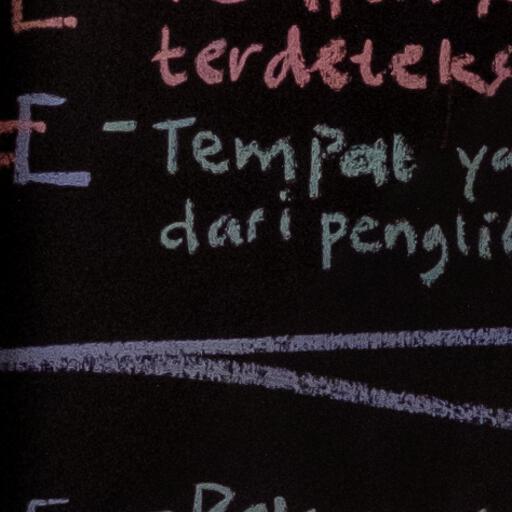 terdeteks
E - Tempat ya
dari pengli